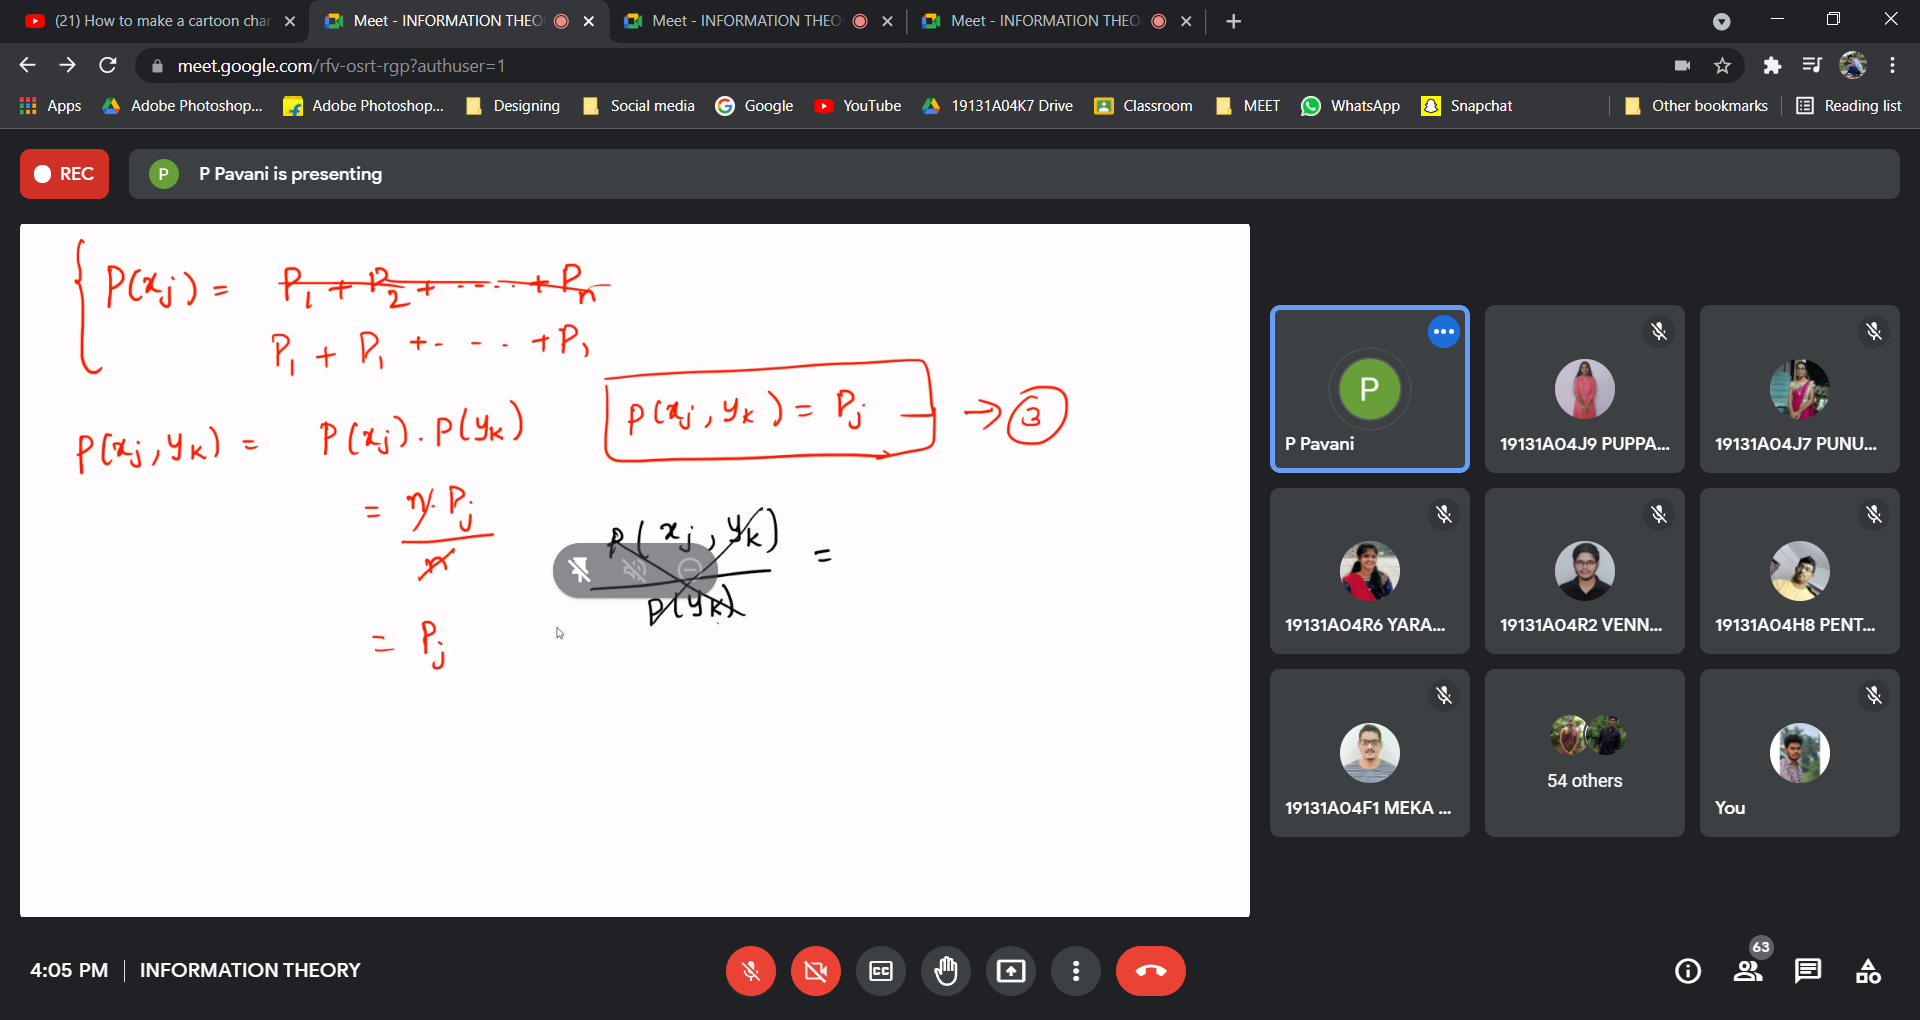 (21) How to make a cartoon char
Meet - INFORMATION THEO
Meet - INFORMATION THEO
Meet - INFORMATION THEO
meet.google.com/rfv-osrt-rgp?authuser=1
Apps
Adobe Photoshop...
Adobe Photoshop...
Designing
Social media
Google
YouTube
19131A04K7 Drive
Classroom
MEET
WhatsApp
Snapchat
Other bookmarks
Reading list
REC
P
P Pavani is presenting
P(xj) = P1 + P2 + ..... + Pn
P1 + P1 + - - .. + P1
P(xj, yk) = Pj → 3
P(xj, yk) = P(xj) . P(yk)
= n. Pj / n
P(xj, yk) / P(yk) =
= Pj
P
P Pavani
19131A04J9 PUPPA...
19131A04J7 PUNU...
19131A04R6 YARA...
19131A04R2 VENN...
19131A04H8 PENT...
19131A04F1 MEKA ...
54 others
You
4:05 PM
INFORMATION THEORY
CC
63